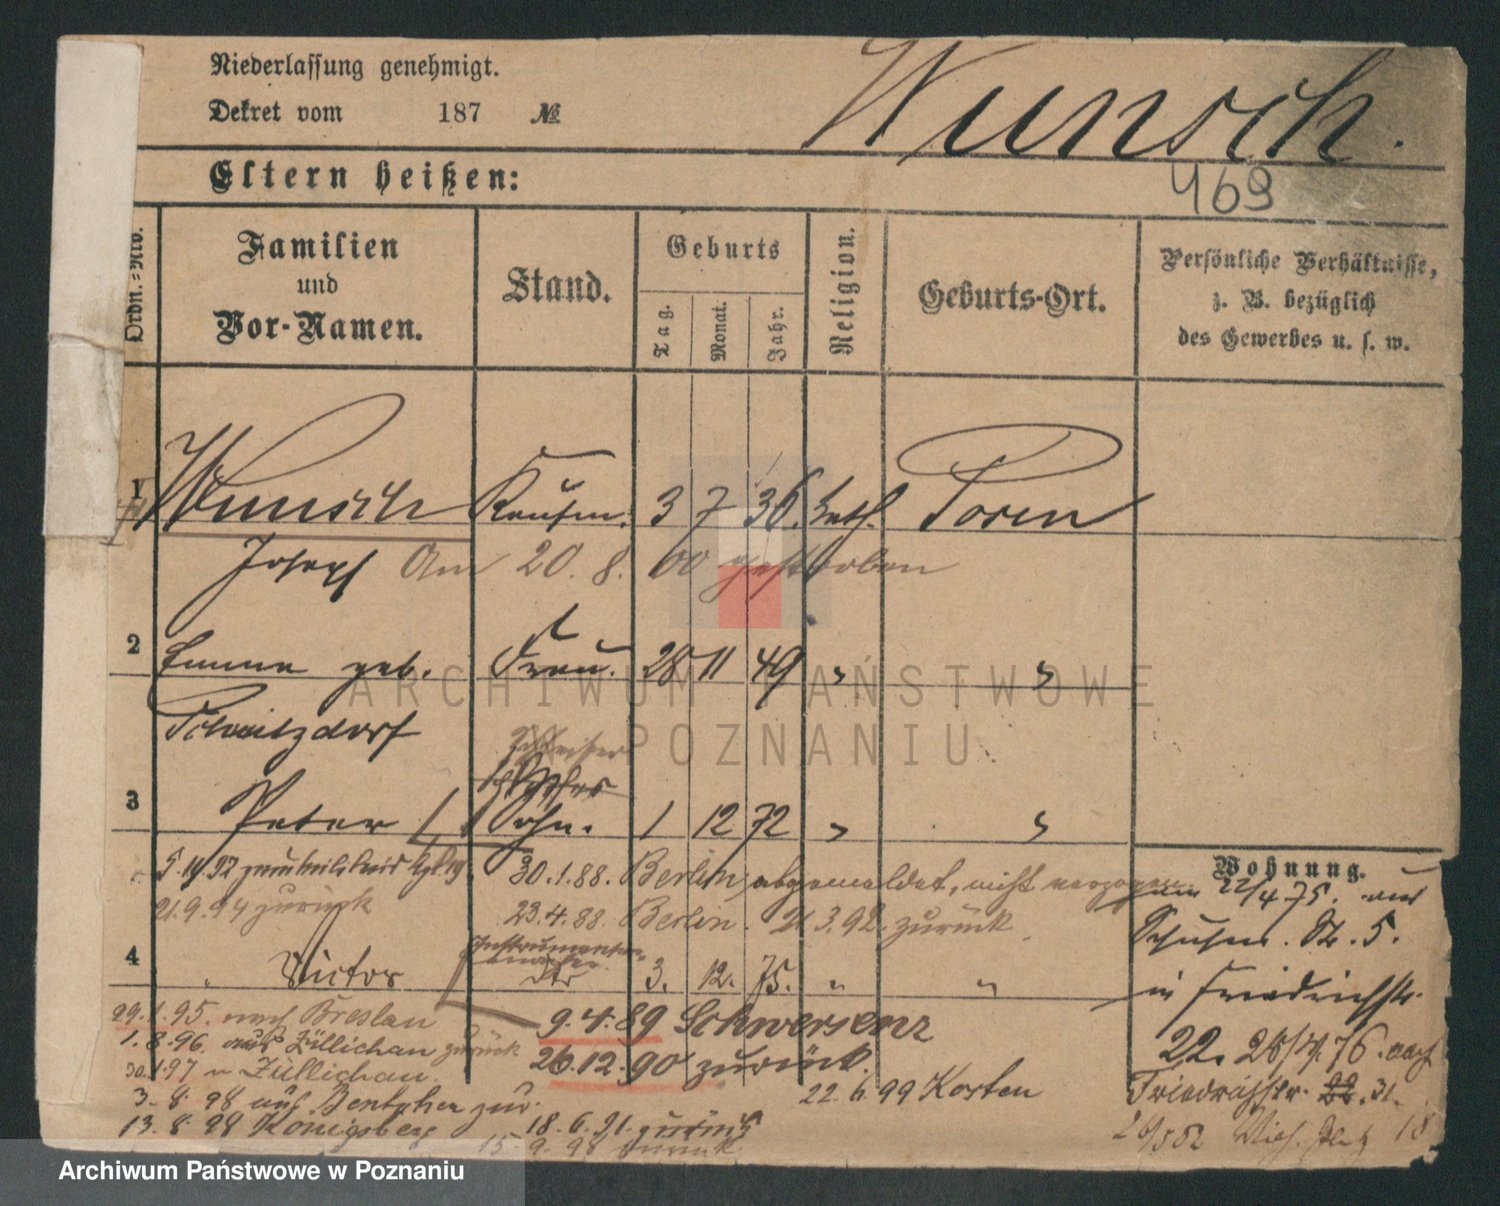 Niederlassung genehmigt.
Dekret vom 187 №
Wunsch.
469
Eltern heißen:
Ordn.-No.
Familien und Vor-Namen.
Stand.
Geburts
Tag.
Monat.
Jahr.
Religion.
Geburts-Ort.
Persönliche Verhältnisse,
z. B. bezüglich
des Gewerbes u. s. w.
1 Wunsch Kaufm. 3 7 36. kath. Posen
Joseph Am 20. 8. 00 gestorben
2 Emma geb. Frau. 28 11 49 " "
3 Peter Sohn. 1 12 72 " "
30.1.88. Berlin abgemeldet, nicht verzogen
21.9.94 zurück 23.4.88. Berlin. 21.3.92. zurück
4 " Victor 3. 12. 75. " "
Wohnung.
22/4 75.
5.
in Friedrichstr.
22. 76. nach
Friedrichstr. 22. 31.
18
29.1.95. nach Breslau 9.4.89 Schwersenz
1.8.96. aus Züllichau zurück 26.12.90 zurück.
Züllichau. 22.6.99 Kosten
3.8.98 auf Bentschen zur.
13.8.98 Königsberg 18.6.91 zurück
15.9.98 zurück
ARCHIWUM PAŃSTWOWE
W POZNANIU
Archiwum Państwowe w Poznaniu